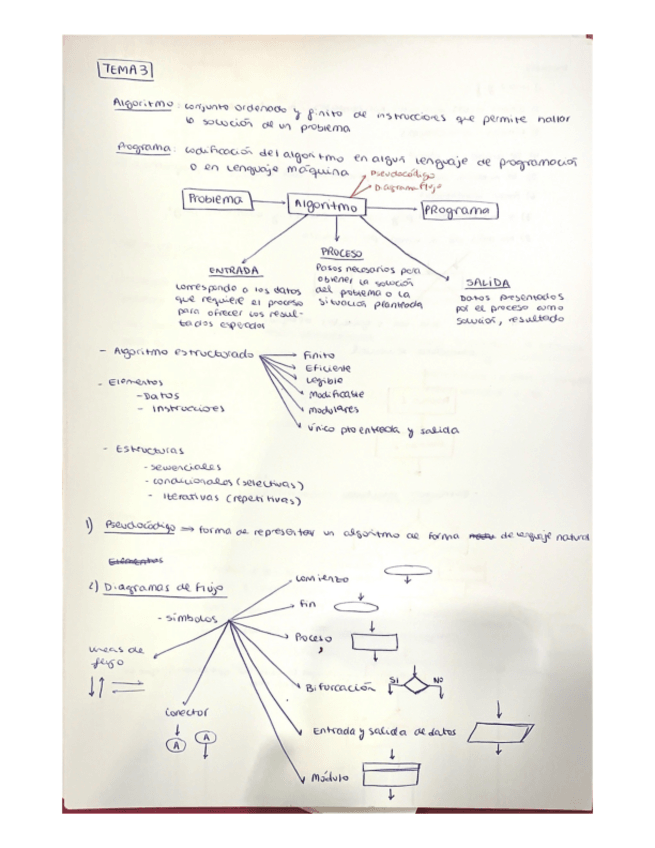 TEMA 3
Algoritmo: conjunto ordenado y finito de instrucciones que permite hallar
la solución de un problema
Programa: codificación del algoritmo en algún lenguaje de programación
o en lenguaje máquina
Pseudocódigo
Diagrama flujo
Problema
Algoritmo
PRograma
ENTRADA
corresponde a los datos
que requiere el proceso
para ofrecer los resul-
tados esperados
PROCESO
Pasos necesarios para
obtener la solución
del problema o la
situación planteada
SALIDA
Datos presentados
por el proceso como
solución, resultado
- Algoritmo estructurado
Finito
Eficiente
Legible
Modificable
modulares
Único pto entrada y salida
- Elementos
- Datos
- Instrucciones
- Estructuras
- secuenciales
- condicionales (selectivas)
- Iterativas (repetitivas)
1) Pseudocódigo → forma de representar un algoritmo de forma de lenguaje natural
Elementos
2) Diagramas de flujo
- símbolos
comienzo
Fin
Proceso
Bifurcación
SI
NO
Entrada y salida de datos
Módulo
lineas de
flujo
Conector
A
A